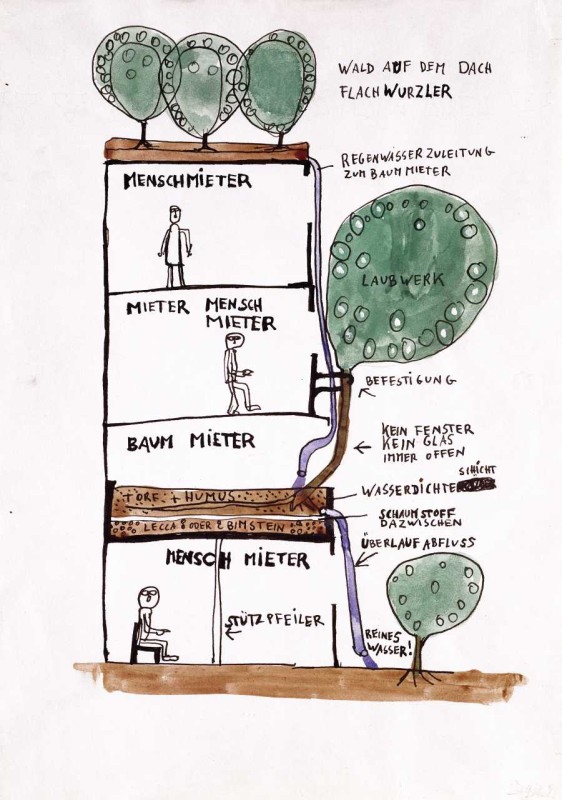 WALD AUF DEM DACH
FLACHWURZLER
REGENWASSERZULEITUNG
ZUM BAUMMIETER
MENSCHMIETER
LAUBWERK
MIETER MENSCH
MIETER
BEFESTIGUNG
KEIN FENSTER
KEIN GLAS
IMMER OFFEN
BAUM MIETER
SCHICHT
WASSERDICHTE
TORF + HUMUS
SCHAUMSTOFF
DAZWISCHEN
LECCA ODER BIMSTEIN
ÜBERLAUF ABFLUSS
MENSCH MIETER
STÜTZPFEILER
REINES
WASSER!